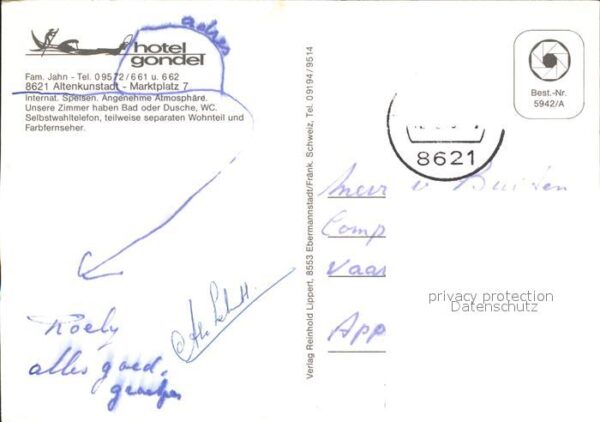 adres
hotel
gondel
Fam. Jahn - Tel. 0 95 72 / 6 61 u. 6 62
8621 Altenkunstadt - Marktplatz 7
Internat. Speisen. Angenehme Atmosphäre.
Unsere Zimmer haben Bad oder Dusche, WC.
Selbstwahltelefon, teilweise separaten Wohnteil und
Farbfernseher.
Roely
alles goed,
groetjes
Verlag Reinhold Lippert, 8553 Ebermannstadt/Fränk. Schweiz, Tel. 09194/9514
Best.-Nr.
5942/A
8621
Comp
Vaas
App
privacy protection
Datenschutz